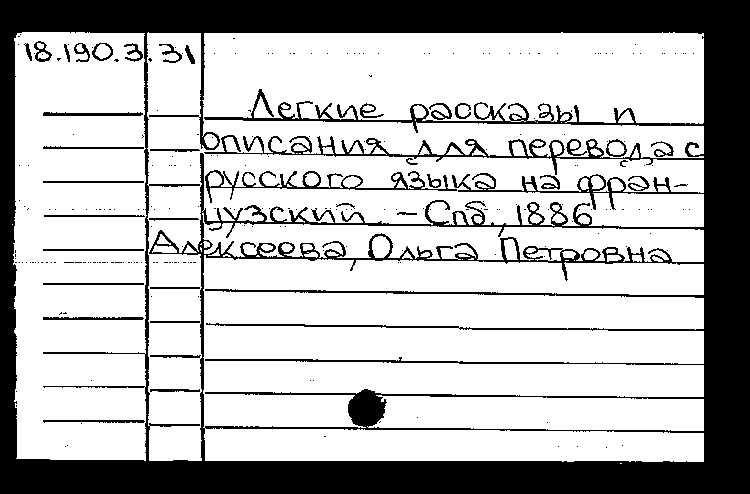 18.190.3.31
Легкие рассказы и
описания для перевода с
русского языка на фран-
цузский. - Спб., 1886
Алексеева, Ольга Петровна